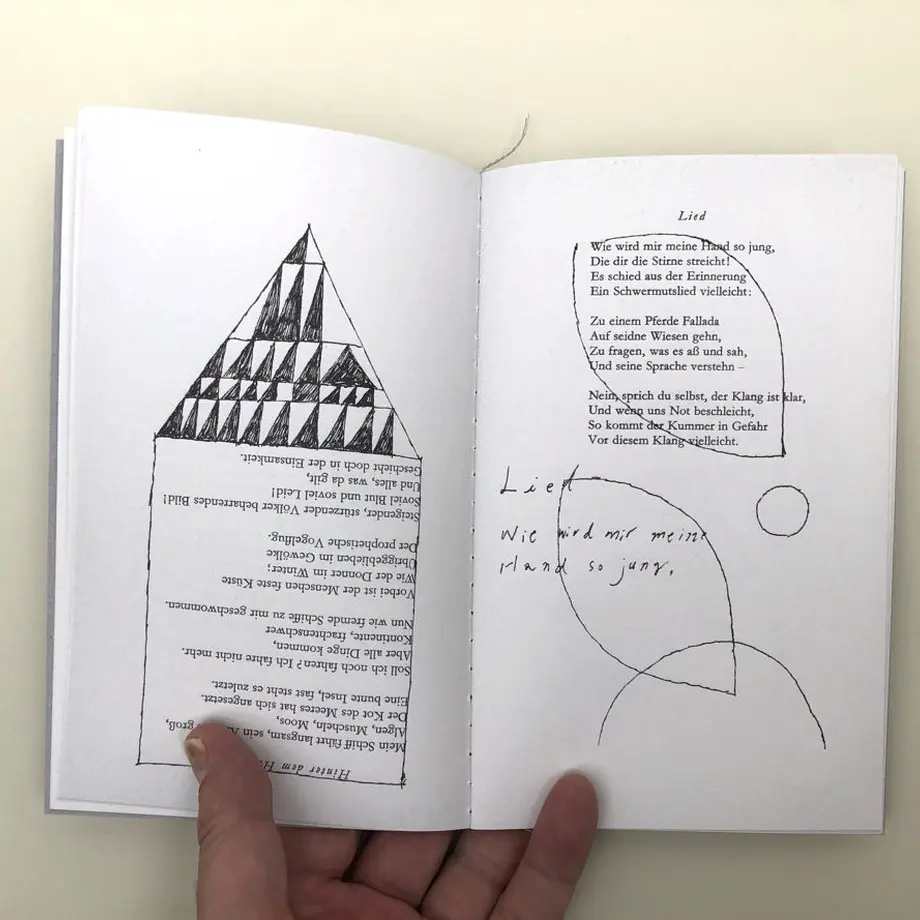 Hinter dem
Mein Schiff fährt langsam, sein groß,
Algen, Muscheln, Moos,
Der Kot des Meeres hat sich angesetzt.
Eine bunte Insel, fast steht es zuletzt.
Soll ich noch fahren? Ich fahre nicht mehr.
Aber alle Dinge kommen,
Kontinente, frachtenschwer
Nun wie fremde Schiffe zu mir geschwommen.
Vorbei ist der Menschen feste Küste
Wie der Donner im Winter;
Übriggeblieben im Gewölke
Der prophetische Vogelflug.
Steigender, stürzender Völker beharrendes Bild!
Soviel Blut und soviel Leid!
Und alles, was da gilt,
Geschieht doch in der Einsamkeit.
Lied
Wie wird mir meine Hand so jung,
Die dir die Stirne streicht!
Es schied aus der Erinnerung
Ein Schwermutslied vielleicht:
Zu einem Pferde Fallada
Auf seidne Wiesen gehn,
Zu fragen, was es aß und sah,
Und seine Sprache verstehn –
Nein, sprich du selbst, der Klang ist klar,
Und wenn uns Not beschleicht,
So kommt der Kummer in Gefahr
Vor diesem Klang vielleicht.
Lied
Wie wird mir meine
Hand so jung,